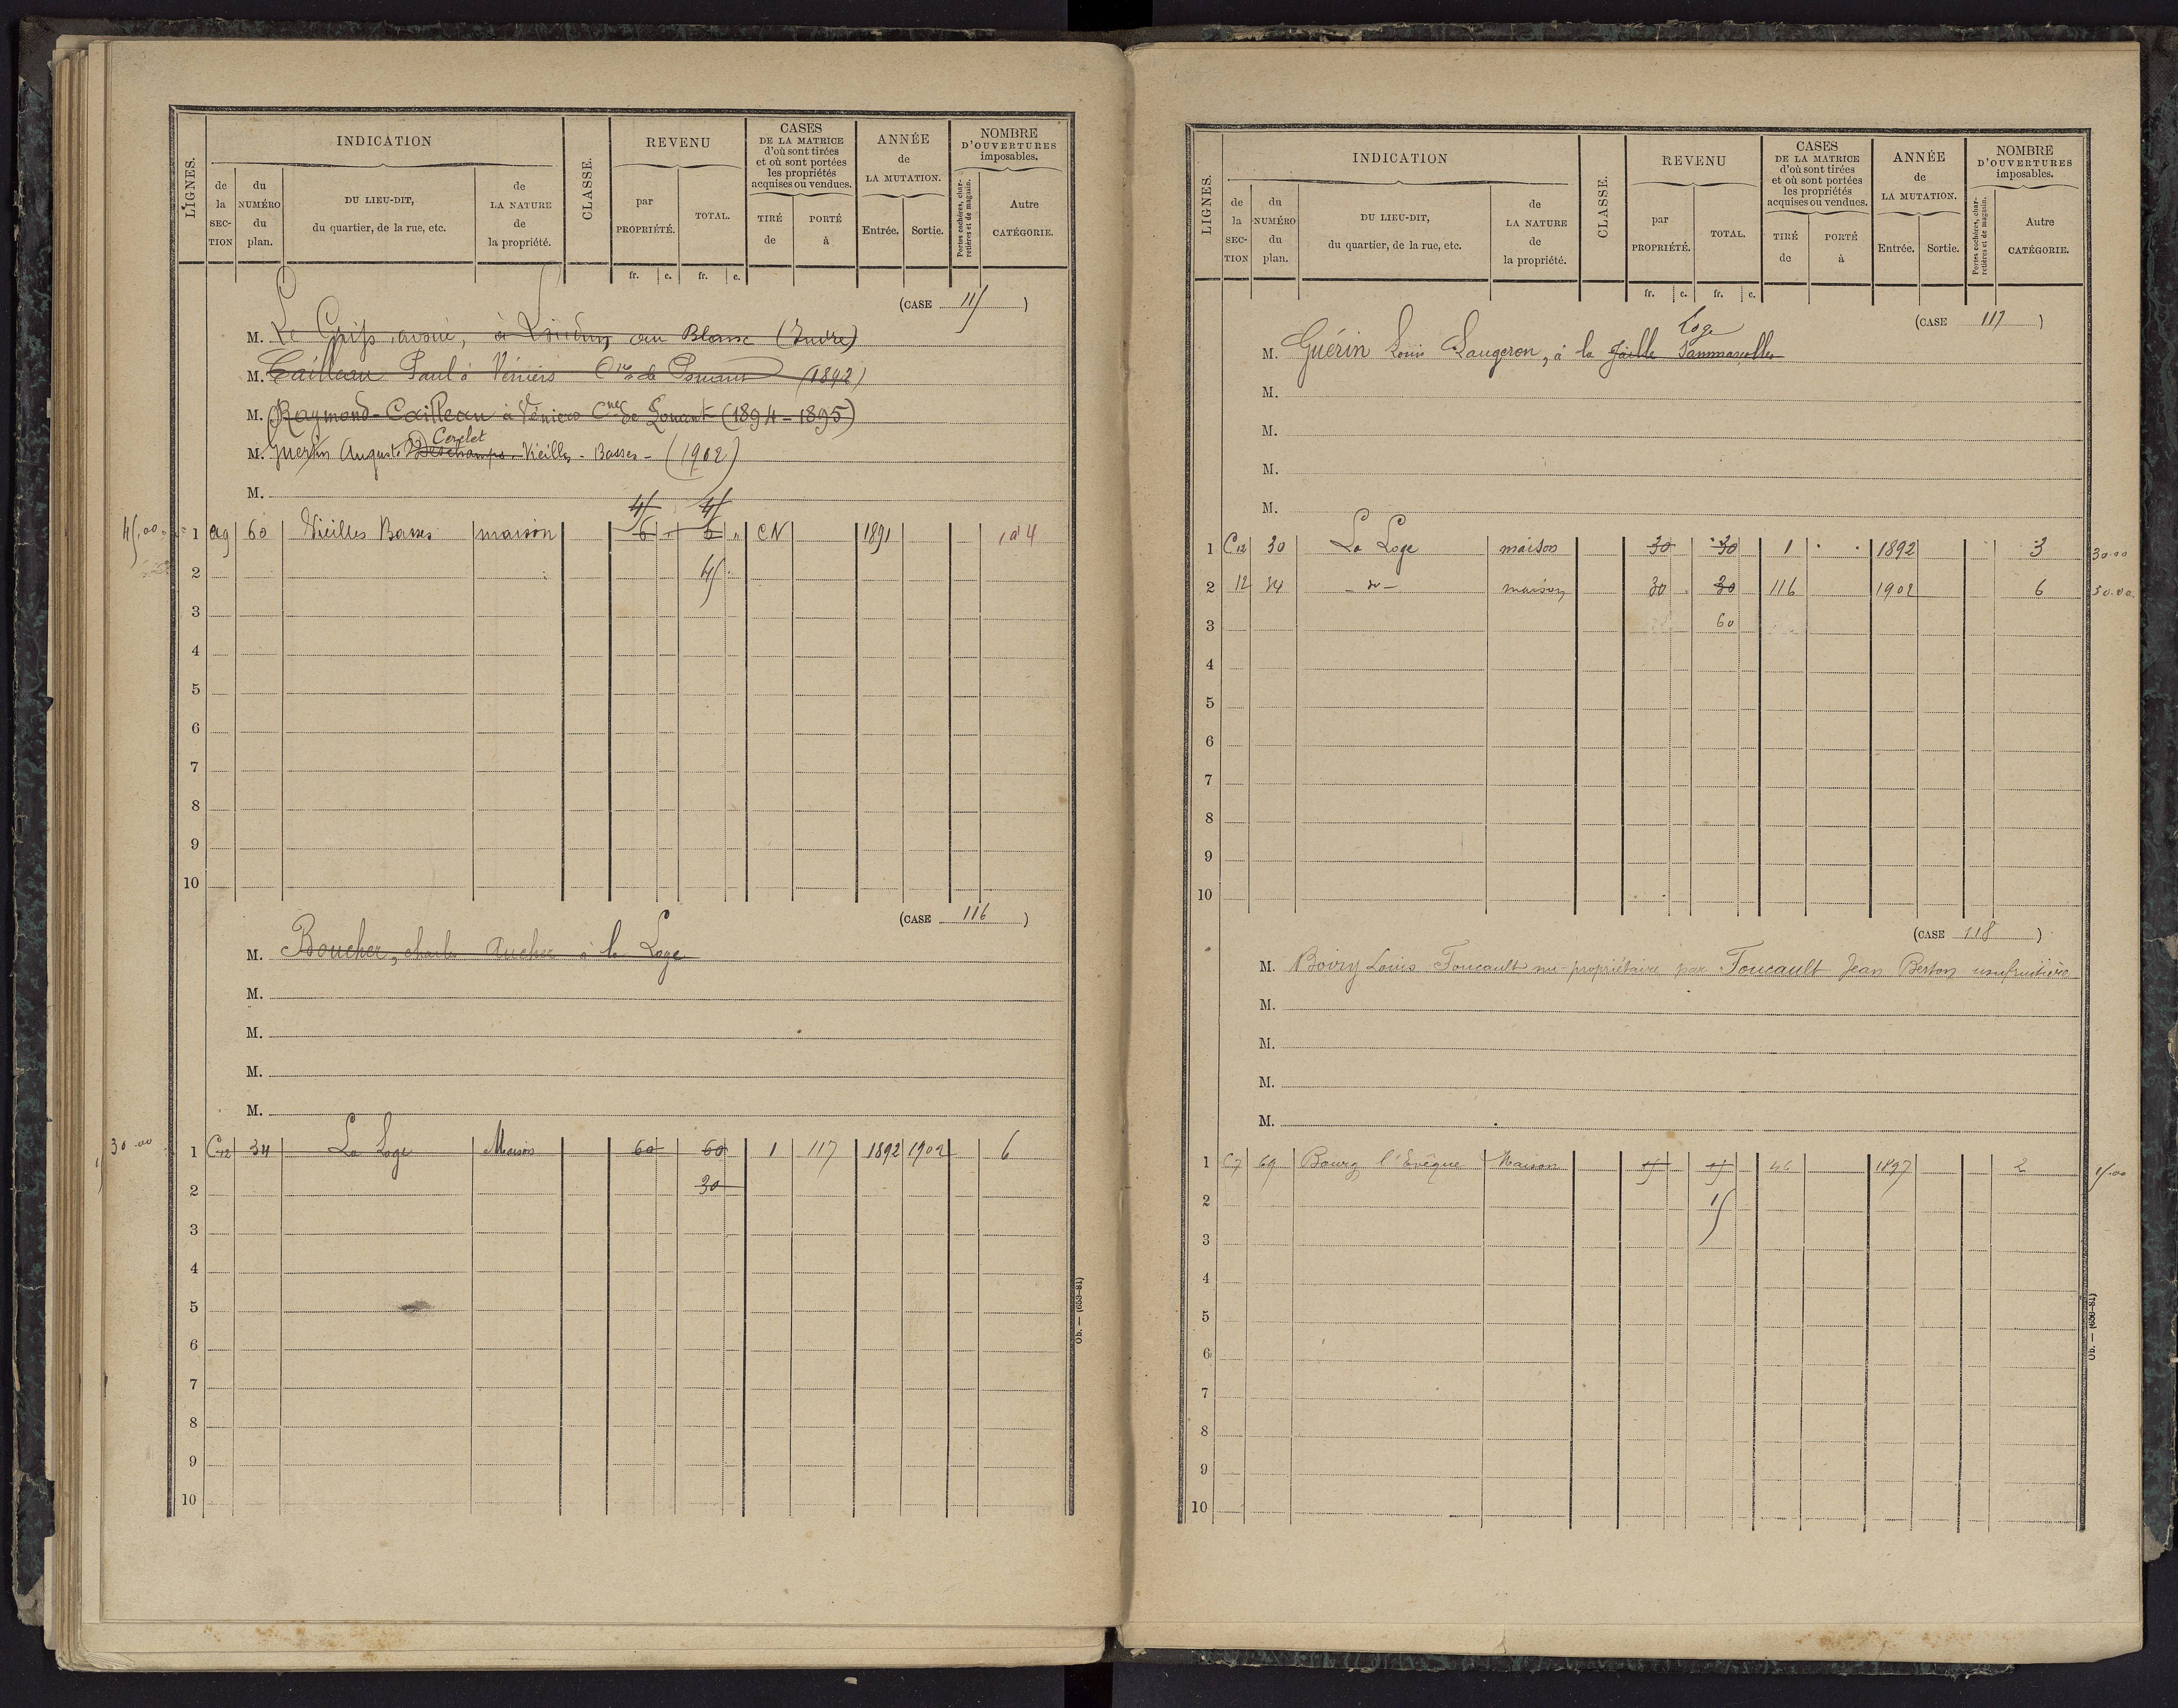 LIGNES.
INDICATION
de la SECTION
du NUMÉRO du plan.
DU LIEU-DIT, du quartier, de la rue, etc.
de LA NATURE de la propriété.
CLASSE.
REVENU
par PROPRIÉTÉ.
TOTAL.
fr. c. fr. c.
CASES DE LA MATRICE d'où sont tirées et où sont portées les propriétés acquises ou vendues.
TIRÉ de
PORTÉ à
ANNÉE de LA MUTATION.
Entrée. Sortie.
NOMBRE D'OUVERTURES imposables.
Portes cochères, charretières et de magasin.
Autre CATÉGORIE.
(CASE 115 )
M. Le avoué, à Loudun au Blanc (Indre)
M. Cailleau Paul à Véniers Cne de (1892)
M. Raymond-Cailleau à Véniers Cne de (1894-1895)
Cerclet
M. Guérin Auguste Deschamps Vieilles-Basses-(1902)
M.
45 45
45.00 1 60 Vieilles Basses maison 6 6 CN 1891 4
2 45
3
4
5
6
7
8
9
10
(CASE 116 )
M. Boucher, charles Aucher à la Loge
M.
M.
M.
M.
30.00 1 C12 34 La Loge Maison 60 60 1 117 1892 1902 6
2 30
3
4
5
6
7
8
9
10
Ob. — (653-81)
LIGNES.
INDICATION
de la SECTION
du NUMÉRO du plan.
DU LIEU-DIT, du quartier, de la rue, etc.
de LA NATURE de la propriété.
CLASSE.
REVENU
par PROPRIÉTÉ.
TOTAL.
fr. c. fr. c.
CASES DE LA MATRICE d'où sont tirées et où sont portées les propriétés acquises ou vendues.
TIRÉ de
PORTÉ à
ANNÉE de LA MUTATION.
Entrée. Sortie.
NOMBRE D'OUVERTURES imposables.
Portes cochères, charretières et de magasin.
Autre CATÉGORIE.
(CASE 117 )
Loge
M. Guérin Louis Laugeron, à la Jaille Sammarcolles
M.
M.
M.
M.
1 C12 30 La Loge maison 30 30 1 1892 3 30.00
2 12 34 -do- maison 30 30 116 1902 6 30.00
3 60
4
5
6
7
8
9
10
(CASE 118 )
M. Boiry Louis Foucault nu-propriétaire par Foucault Jean Berton usufruitière
M.
M.
M.
M.
1 C7 69 Bourg l'Evêque Maison 15 15 46 1897 2 15.00
2 15
3
4
5
6
7
8
9
10